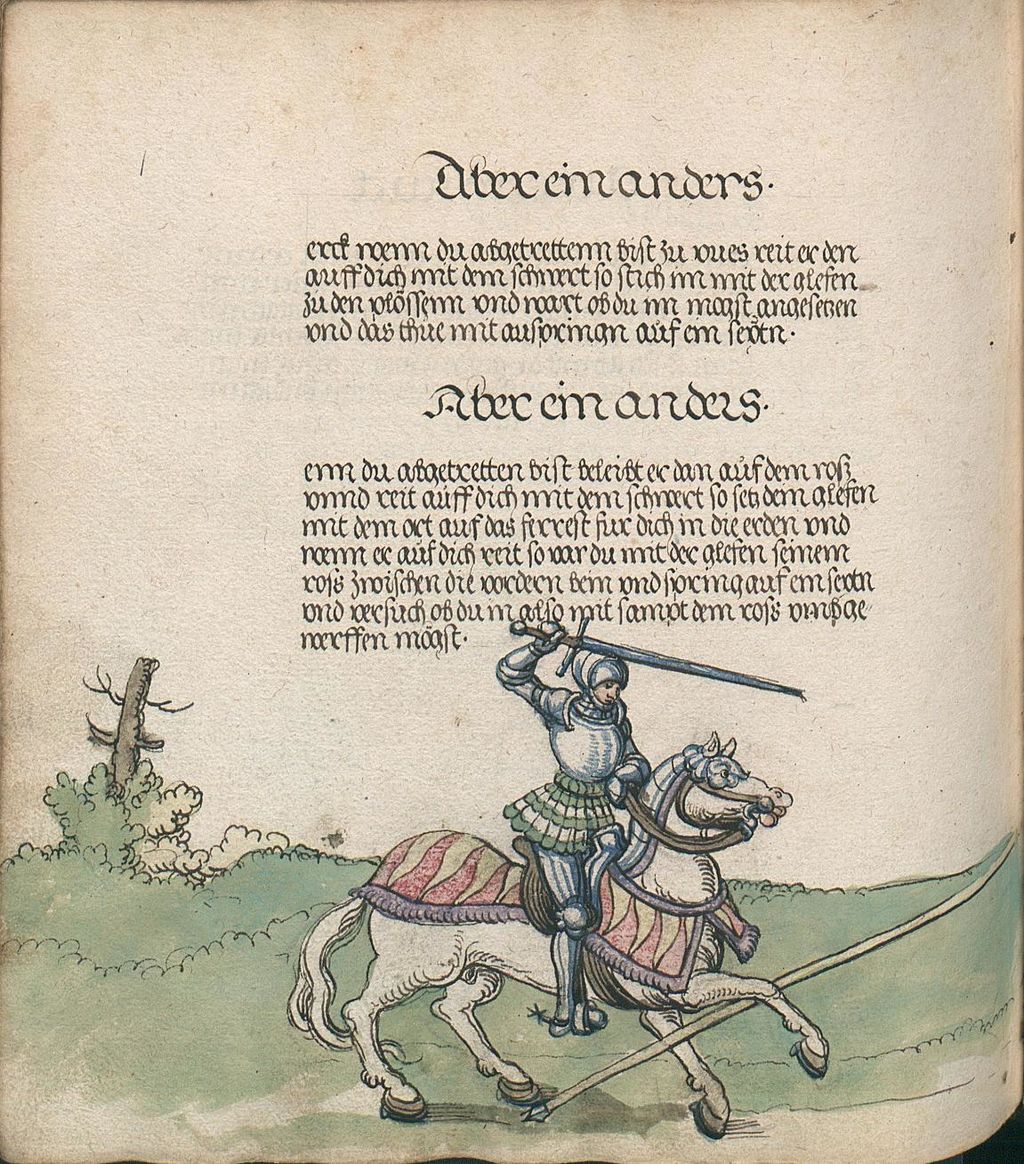 Aber ein anders.
erck wenn du abgetrettenn bist zu vues reit er den
auff dich mit dem schwert so stich im mit der glefen
zu den plössenn vnd wart ob du im mogst angesetzen
vnd das thue mit auspringn auf ein seytn.
Aber ein anders.
enn du abgetretten bist beleibt er dan aůf dem rosz
vnnd reit aůff dich mit dem schwert so setz dein glefen
mit dem ort auf das ferrest fur dich in die erden vnd
wenn er aůf dich reit so var du mit der glefen seinem
ross zwischen die vordern bein vnd spring auf ein seytn
vnd versuch ob du in also mit sampt dem ross vmbge-
werffen mögst.